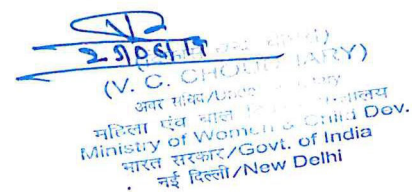 (V. C. CHOUDHARY)
अवर सचिव/Under Secretary
महिला एंव बाल विकास मंत्रालय
Ministry of Women & Child Dev.
भारत सरकार/Govt. of India
नई दिल्ली/New Delhi